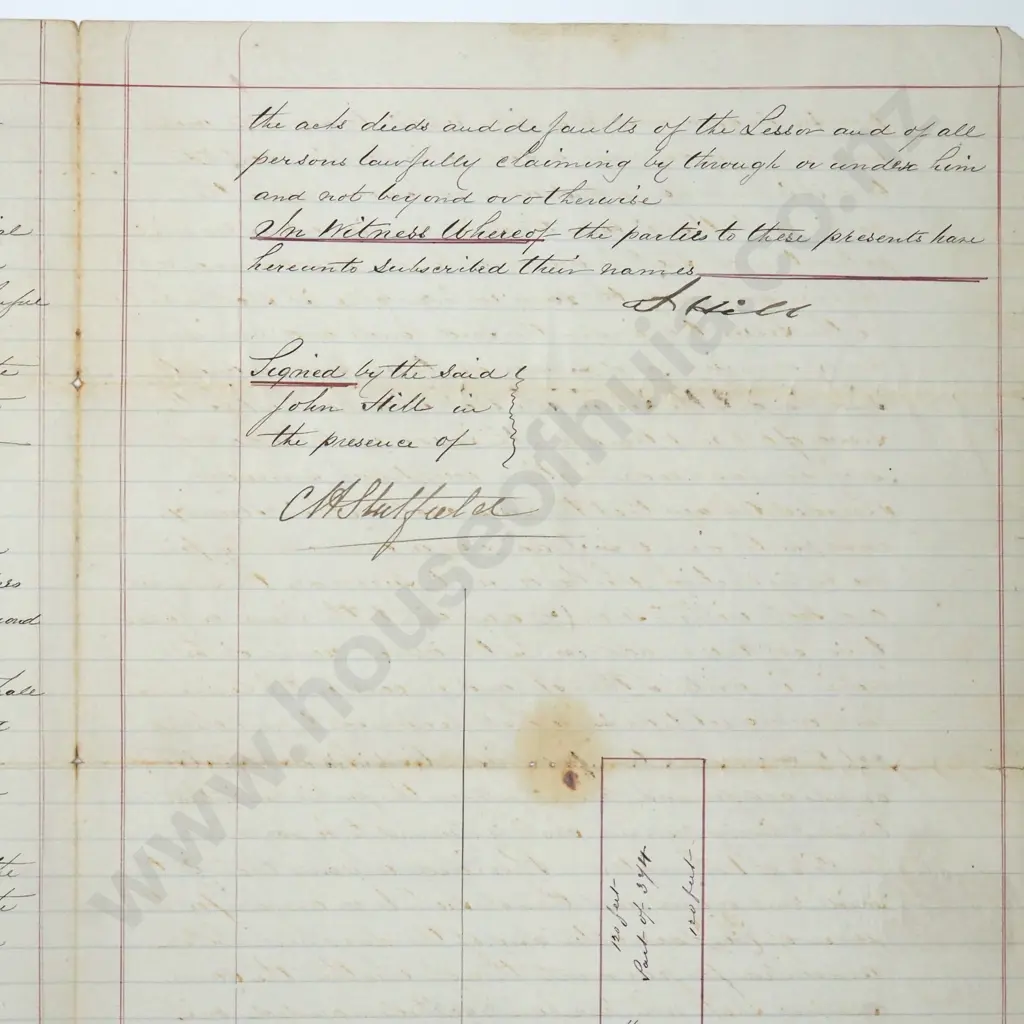 the acts deeds and defaults of the Lessor and of all
persons lawfully claiming by through or under him
and not beyond or otherwise
In Witness Whereof the parties to these presents have
hereunto subscribed their names
J Hill
Signed by the said
John Hill in
the presence of
120 feet
Part of 374
120 feet
www.houseofhuia.co.nz